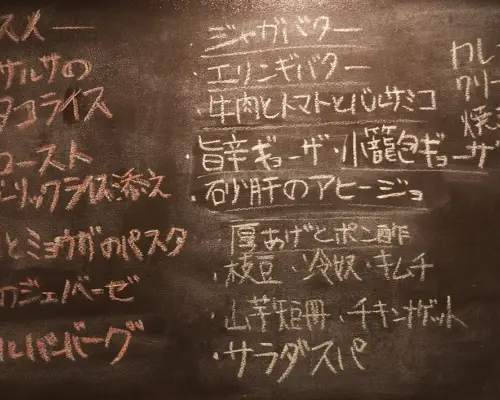 スメー
サルサの
タコライス
ロースト
ーリックライス添え
とミョウガのパスタ
のジェノベーゼ
ルハンバーグ
ジャガバター
・エリンギバター
・牛肉とトマトとバルサミコ
・旨辛ギョーザ・小籠包ギョーザ
・砂肝のアヒージョ
厚あげとポン酢
・枝豆・冷奴・キムチ
・山芋短冊・チキンナゲット
・サラダスパ
カレ
クリー
焼